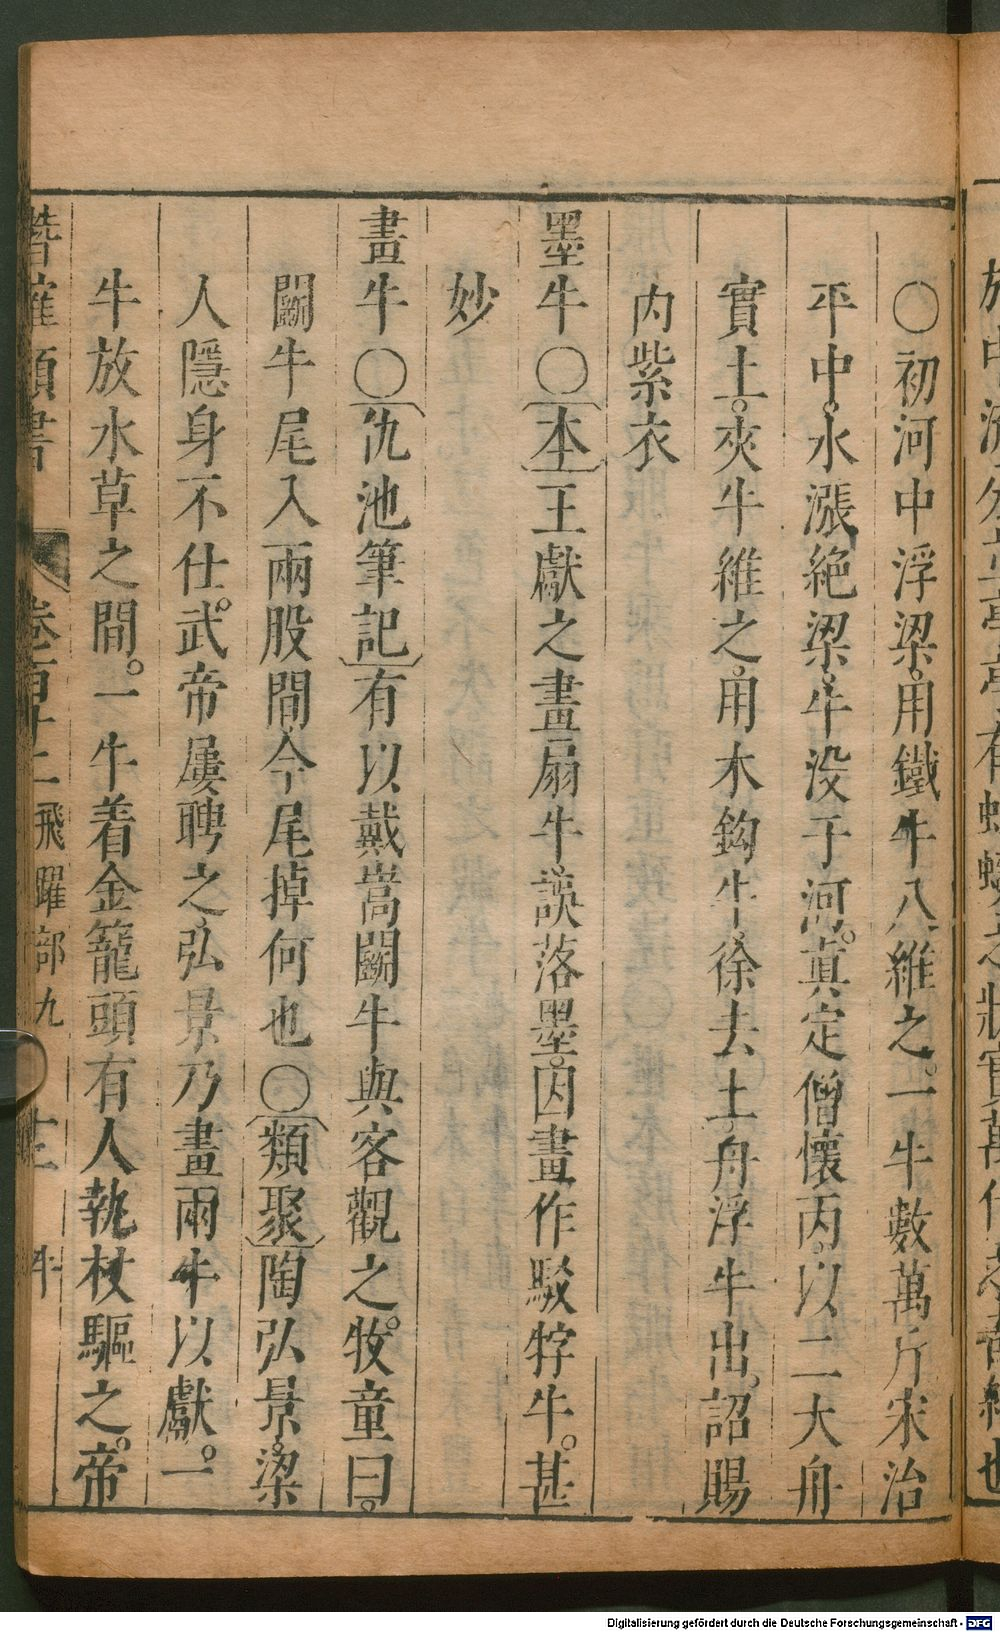 〇初河中浮梁。用鐵牛八維之。一牛數萬斤宋治
平中。水漲絕梁。牛没于河。真定僧懷丙。以二大舟
實土。夾牛維之。用木鈎牛。徐去土。舟浮牛出。詔賜
内紫衣
墨牛〇〔本〕王獻之畫扇牛。誤落墨。因畫作駁牸牛。甚
妙
畫牛〇〔仇池筆記〕有以戴嵩鬭牛與客觀之。牧童曰。
鬭牛尾入兩股間。今尾掉何也〇〔類聚〕陶弘景。梁
人隱身不仕。武帝屢聘之。弘景乃畫兩牛以獻。一
牛放水草之間。一牛着金籠頭有人執杖驅之。帝
潛確類書 卷百十二 飛躍部九 十三 牛
Digitalisierung gefördert durch die Deutsche Forschungsgemeinschaft - DFG